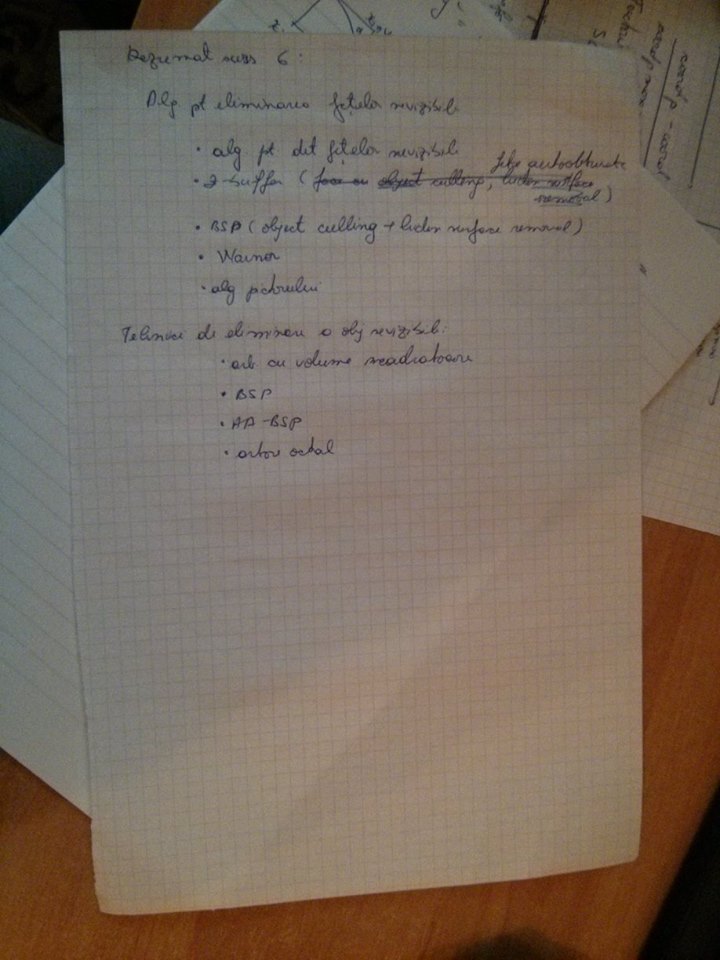 Rezumat curs 6:
Alg pt eliminarea fețelor nevizibile
• alg pt det fețelor nevizibile
fețe autoobturate
• z-buffer (face cu object culling, hiden surface
removal)
• BSP (object culling + hiden surface removal)
• Warnor
• alg pictorului
Tehnici de eliminare a obj nevizibile:
• arb cu volume incadratoare
• BSP
• AA-BSP
• arbore octal